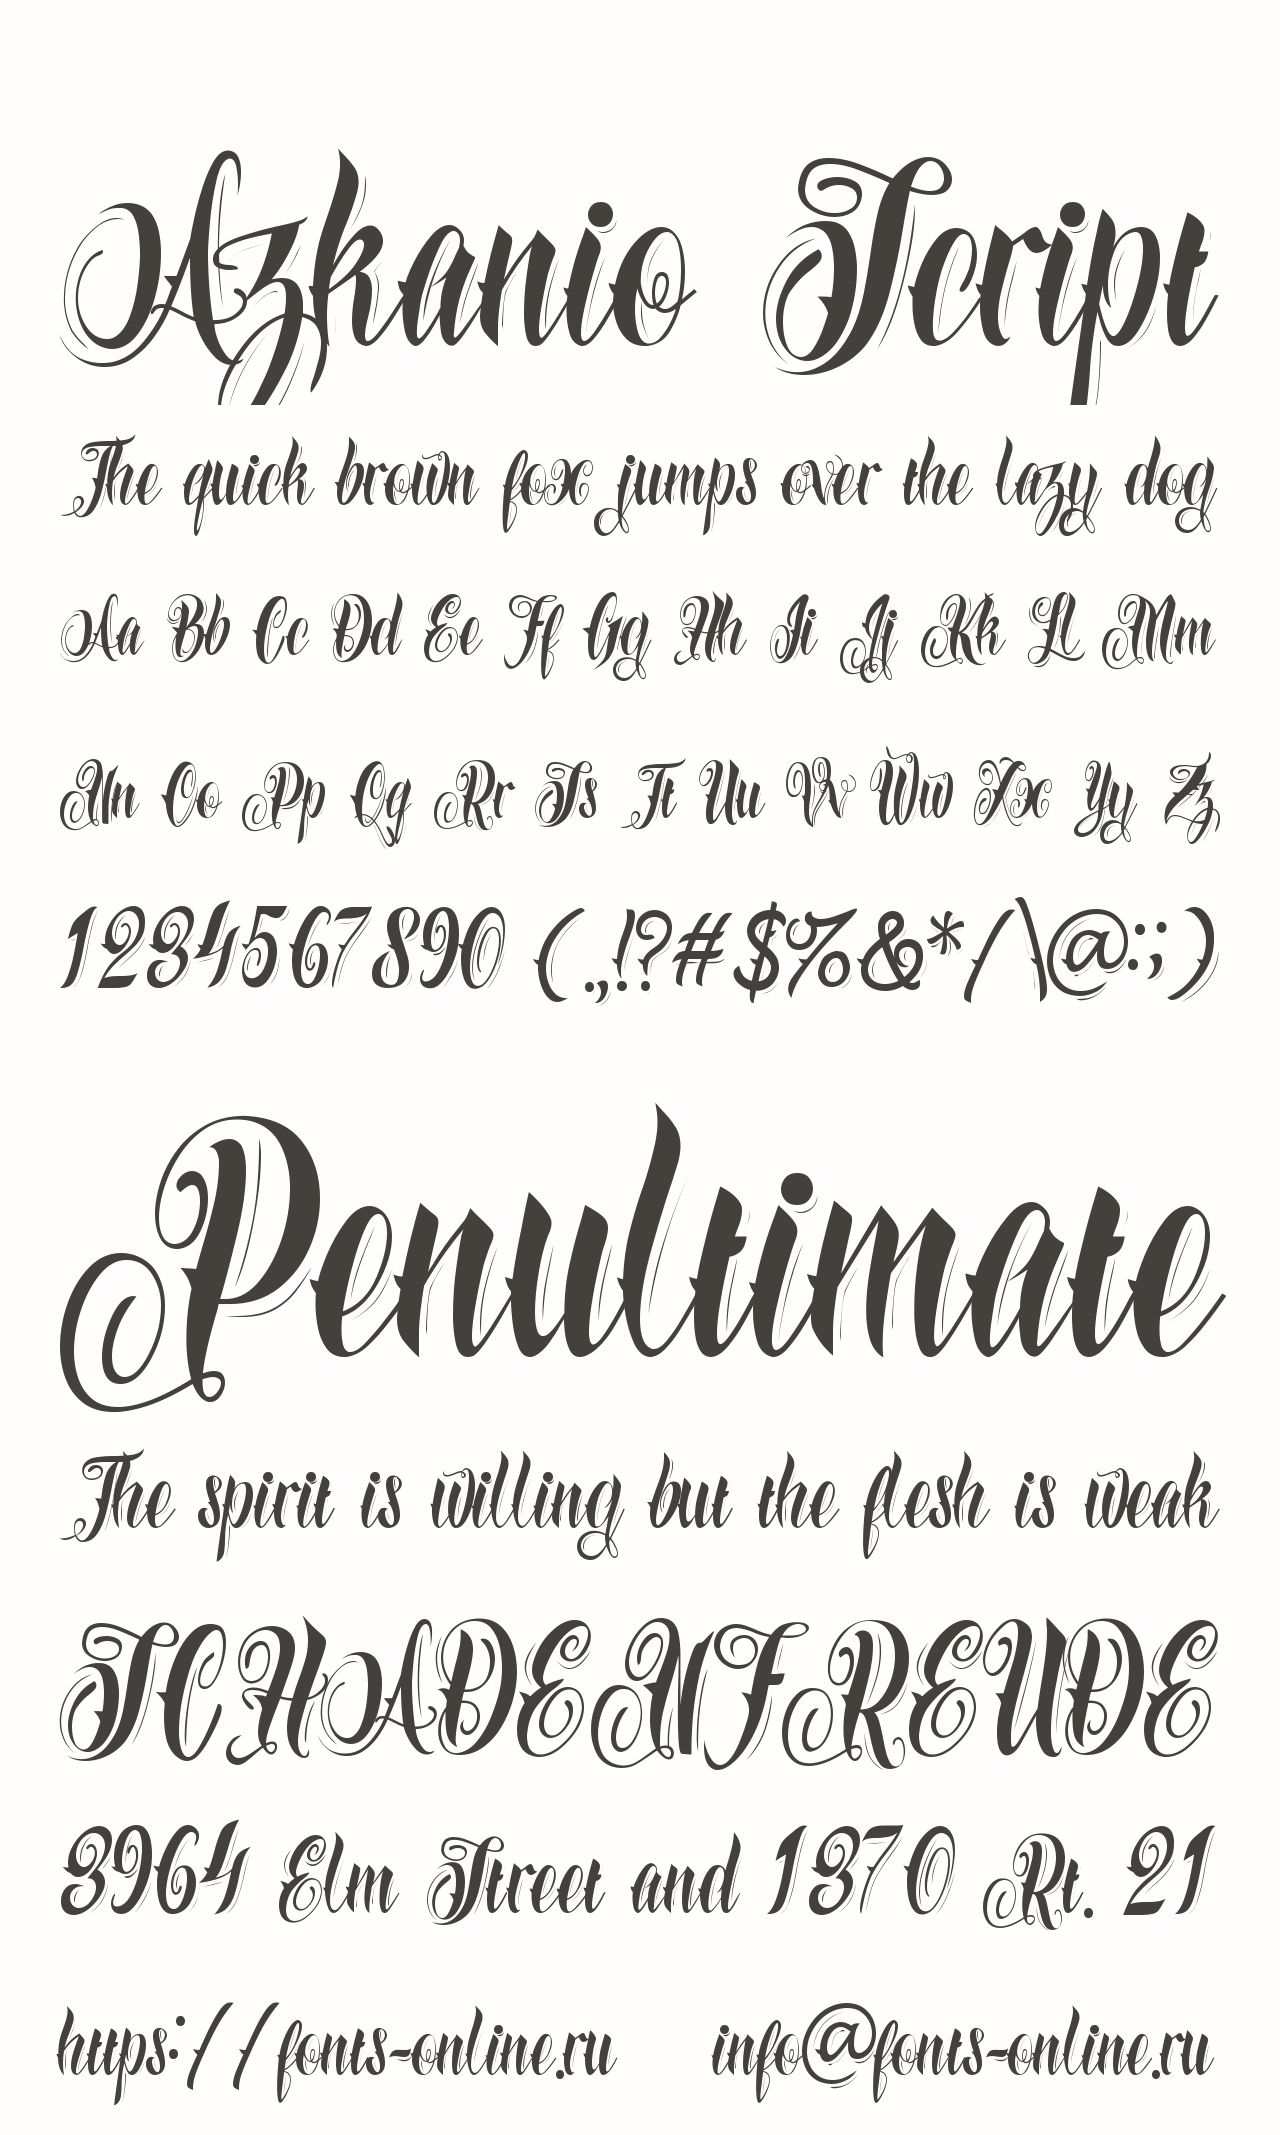 Azkanio Script
The quick brown fox jumps over the lazy dog
Aa Bb Cc Dd Ee Ff Gg Hh Ii Jj Kk Ll Mm
Nn Oo Pp Qq Rr Ss Tt Uu Vv Ww Xx Yy Zz
1234567890 (.,!?#$%&*/\@:;)
Penultimate
The spirit is willing but the flesh is weak
SCHADENFREUDE
3964 Elm Street and 1370 Rt. 21
https://fonts-online.ru info@fonts-online.ru